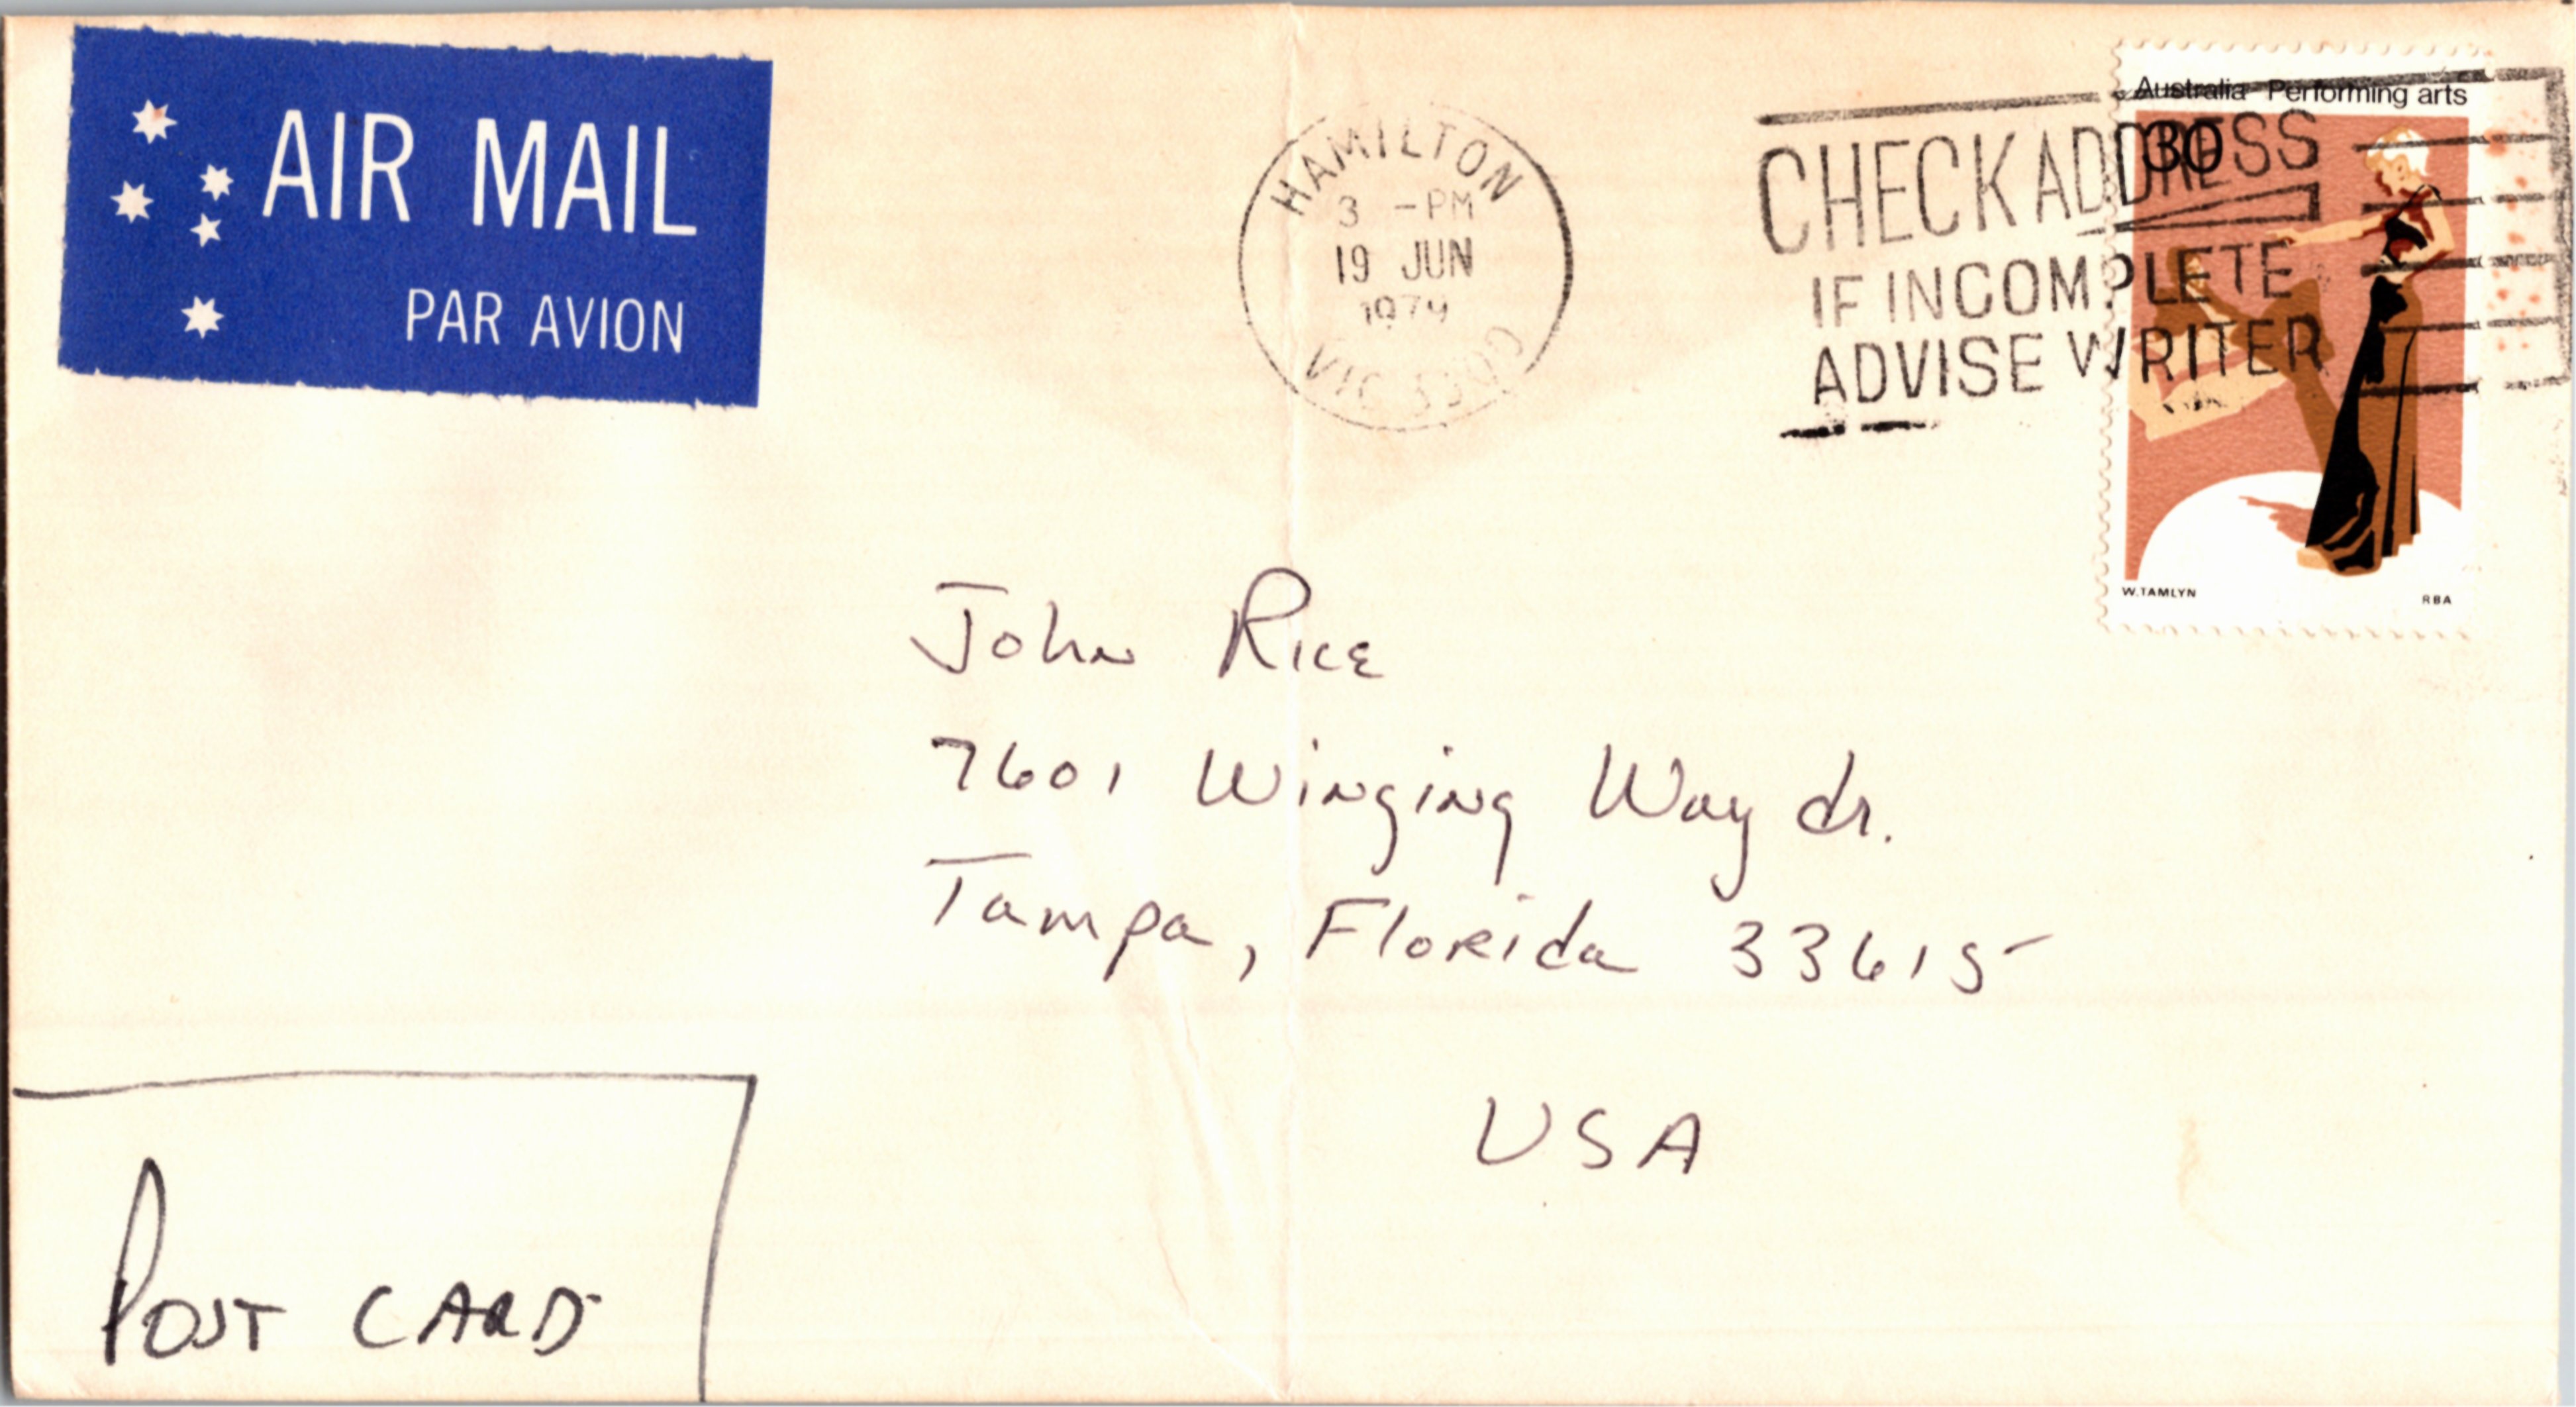 AIR MAIL
PAR AVION
HAMILTON
3 -PM
19 JUN
1979
VIC
CHECK ADDRESS
IF INCOMPLETE
ADVISE WRITER
Australia - Performing arts
30
W.TAMLYN
RBA
John Rice
7601 Winging Way dr.
Tampa, Florida 33615
USA
POST CARD